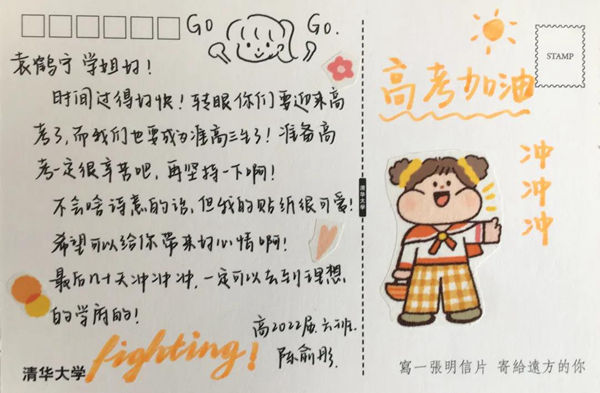 GO GO.
袁鹤宁学姐好!
时间过得好快!转眼你们要迎来高
考了,而我们也要成为准高三生了!准备高
考一定很辛苦吧,再坚持一下啊!
不会啥诗意的话,但我的贴纸很可爱!
希望可以给你带来好心情啊!
最后几十天冲冲冲,一定可以去到理想
的学府的!
高2022届六班.
陈俞彤.
清华大学
fighting!
清华大学
STAMP
高考加油
冲
冲
冲
寫一張明信片 寄給遠方的你